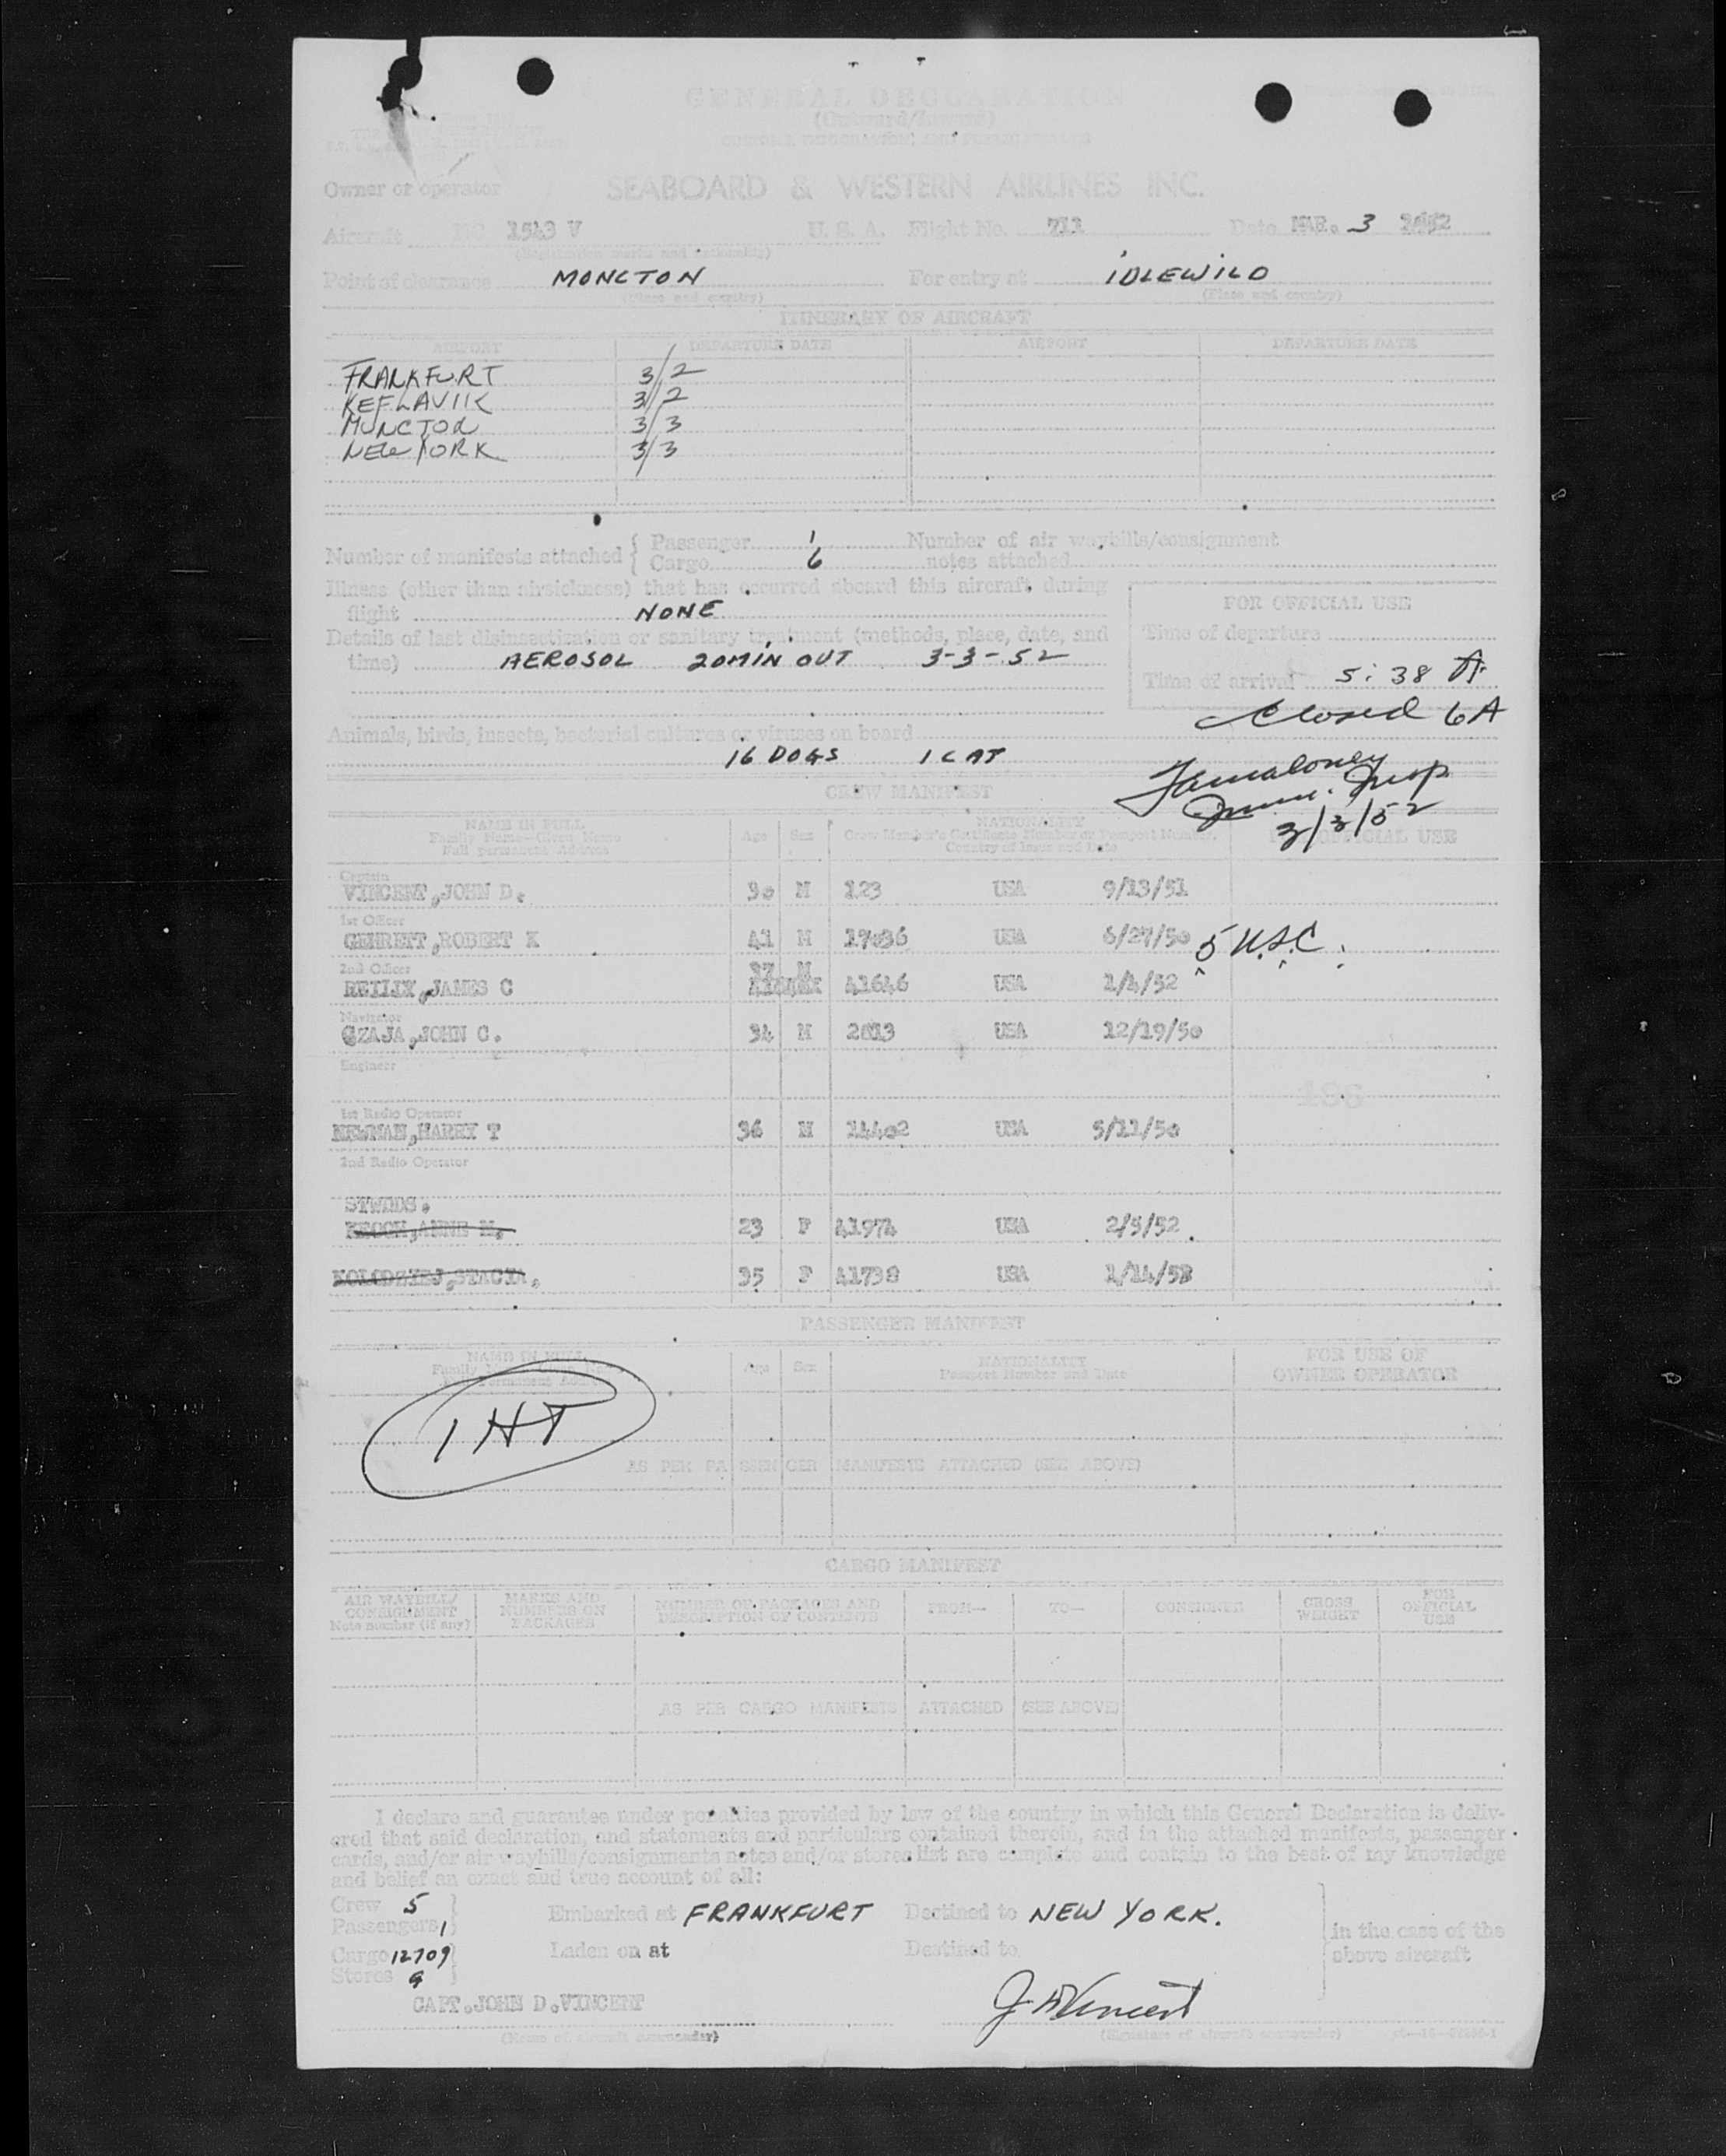 GENERAL DECLARATION
(Outward/Inward)
CUSTOMS, IMMIGRATION, AND PUBLIC HEALTH
Owner or operator SEABOARD & WESTERN AIRLINES INC.
Aircraft 1543 V U. S. A. Flight No. 711 Date MAR. 3 1952
(Registration marks and nationality)
Point of clearance MONCTON For entry at IDLEWILD
(Place and country) (Place and country)
ITINERARY OF AIRCRAFT
AIRPORT DEPARTURE DATE AIRPORT DEPARTURE DATE
FRANKFURT 3/2
KEFLAVIK 3/2
MONCTON 3/3
NEW YORK 3/3
Number of manifests attached { Passenger 1 Number of air waybills/consignment
Cargo 6 notes attached
Illness (other than airsickness) that has occurred aboard this aircraft during
flight NONE
FOR OFFICIAL USE
Details of last disinsectization or sanitary treatment (methods, place, date, and
time) AEROSOL 20 MIN OUT 3-3-52
Time of departure
Time of arrival 5:38 A
Closed 6A
Animals, birds, insects, bacterial cultures or viruses on board
16 DOGS 1 CAT
Imm. Insp
3/3/52
CREW MANIFEST
NAME IN FULL
Family Name—Given Name
Full permanent Address
Age Sex
NATIONALITY
Crew Member's Certificate Number or Passport Number,
Country of Issue and Date
FOR OFFICIAL USE
Captain
VINCENT,JOHN D. 30 M 123 USA 9/13/51
1st Officer
GEHRETT,ROBERT K 41 M 17036 USA 6/27/50 5 U.S.C.
2nd Officer
37 M
REILLY,JAMES C 41646 USA 1/4/52
Navigator
CZAJA,JOHN C. 34 M 2813 USA 12/19/50
Engineer
186
1st Radio Operator
NEWMAN,HARRY T 36 M 14402 USA 5/11/50
2nd Radio Operator
STWRDS.
KEOCH,ANNE M. 23 F 41974 USA 2/5/52
KOLODZIEJ,STACIA. 35 F 41738 USA 1/14/52
PASSENGER MANIFEST
NAME IN FULL
Age Sex
NATIONALITY
Passport Number and Date
FOR USE OF
OWNER OPERATOR
1 HT
AS PER PASSENGER MANIFESTS ATTACHED (SEE ABOVE)
CARGO MANIFEST
AIR WAYBILL/
CONSIGNMENT
Note number (if any)
MARKS AND
NUMBERS ON
PACKAGES
NUMBER OF PACKAGES AND
DESCRIPTION OF CONTENTS
FROM— TO— CONSIGNEE
GROSS
WEIGHT
FOR
OFFICIAL
USE
AS PER CARGO MANIFESTS ATTACHED (SEE ABOVE)
I declare and guarantee under penalties provided by law of the country in which this General Declaration is deliv-
ered that said declaration, and statements and particulars contained therein, and in the attached manifests, passenger
cards, and/or air waybills/consignments notes and/or stores list are complete and contain to the best of my knowledge
and belief an exact and true account of all:
Crew 5
Passengers 1 Embarked at FRANKFURT Destined to NEW YORK.
Cargo 12709 Laden on at Destined to
Stores 9
in the case of the
above aircraft
CAPT.JOHN D.VINCENT J D Vincent
(Name of aircraft commander) (Signature of aircraft commander)